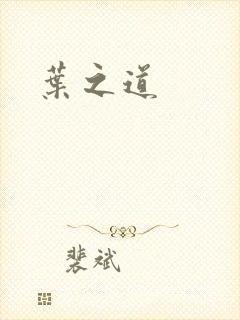 葉之道
裴斌